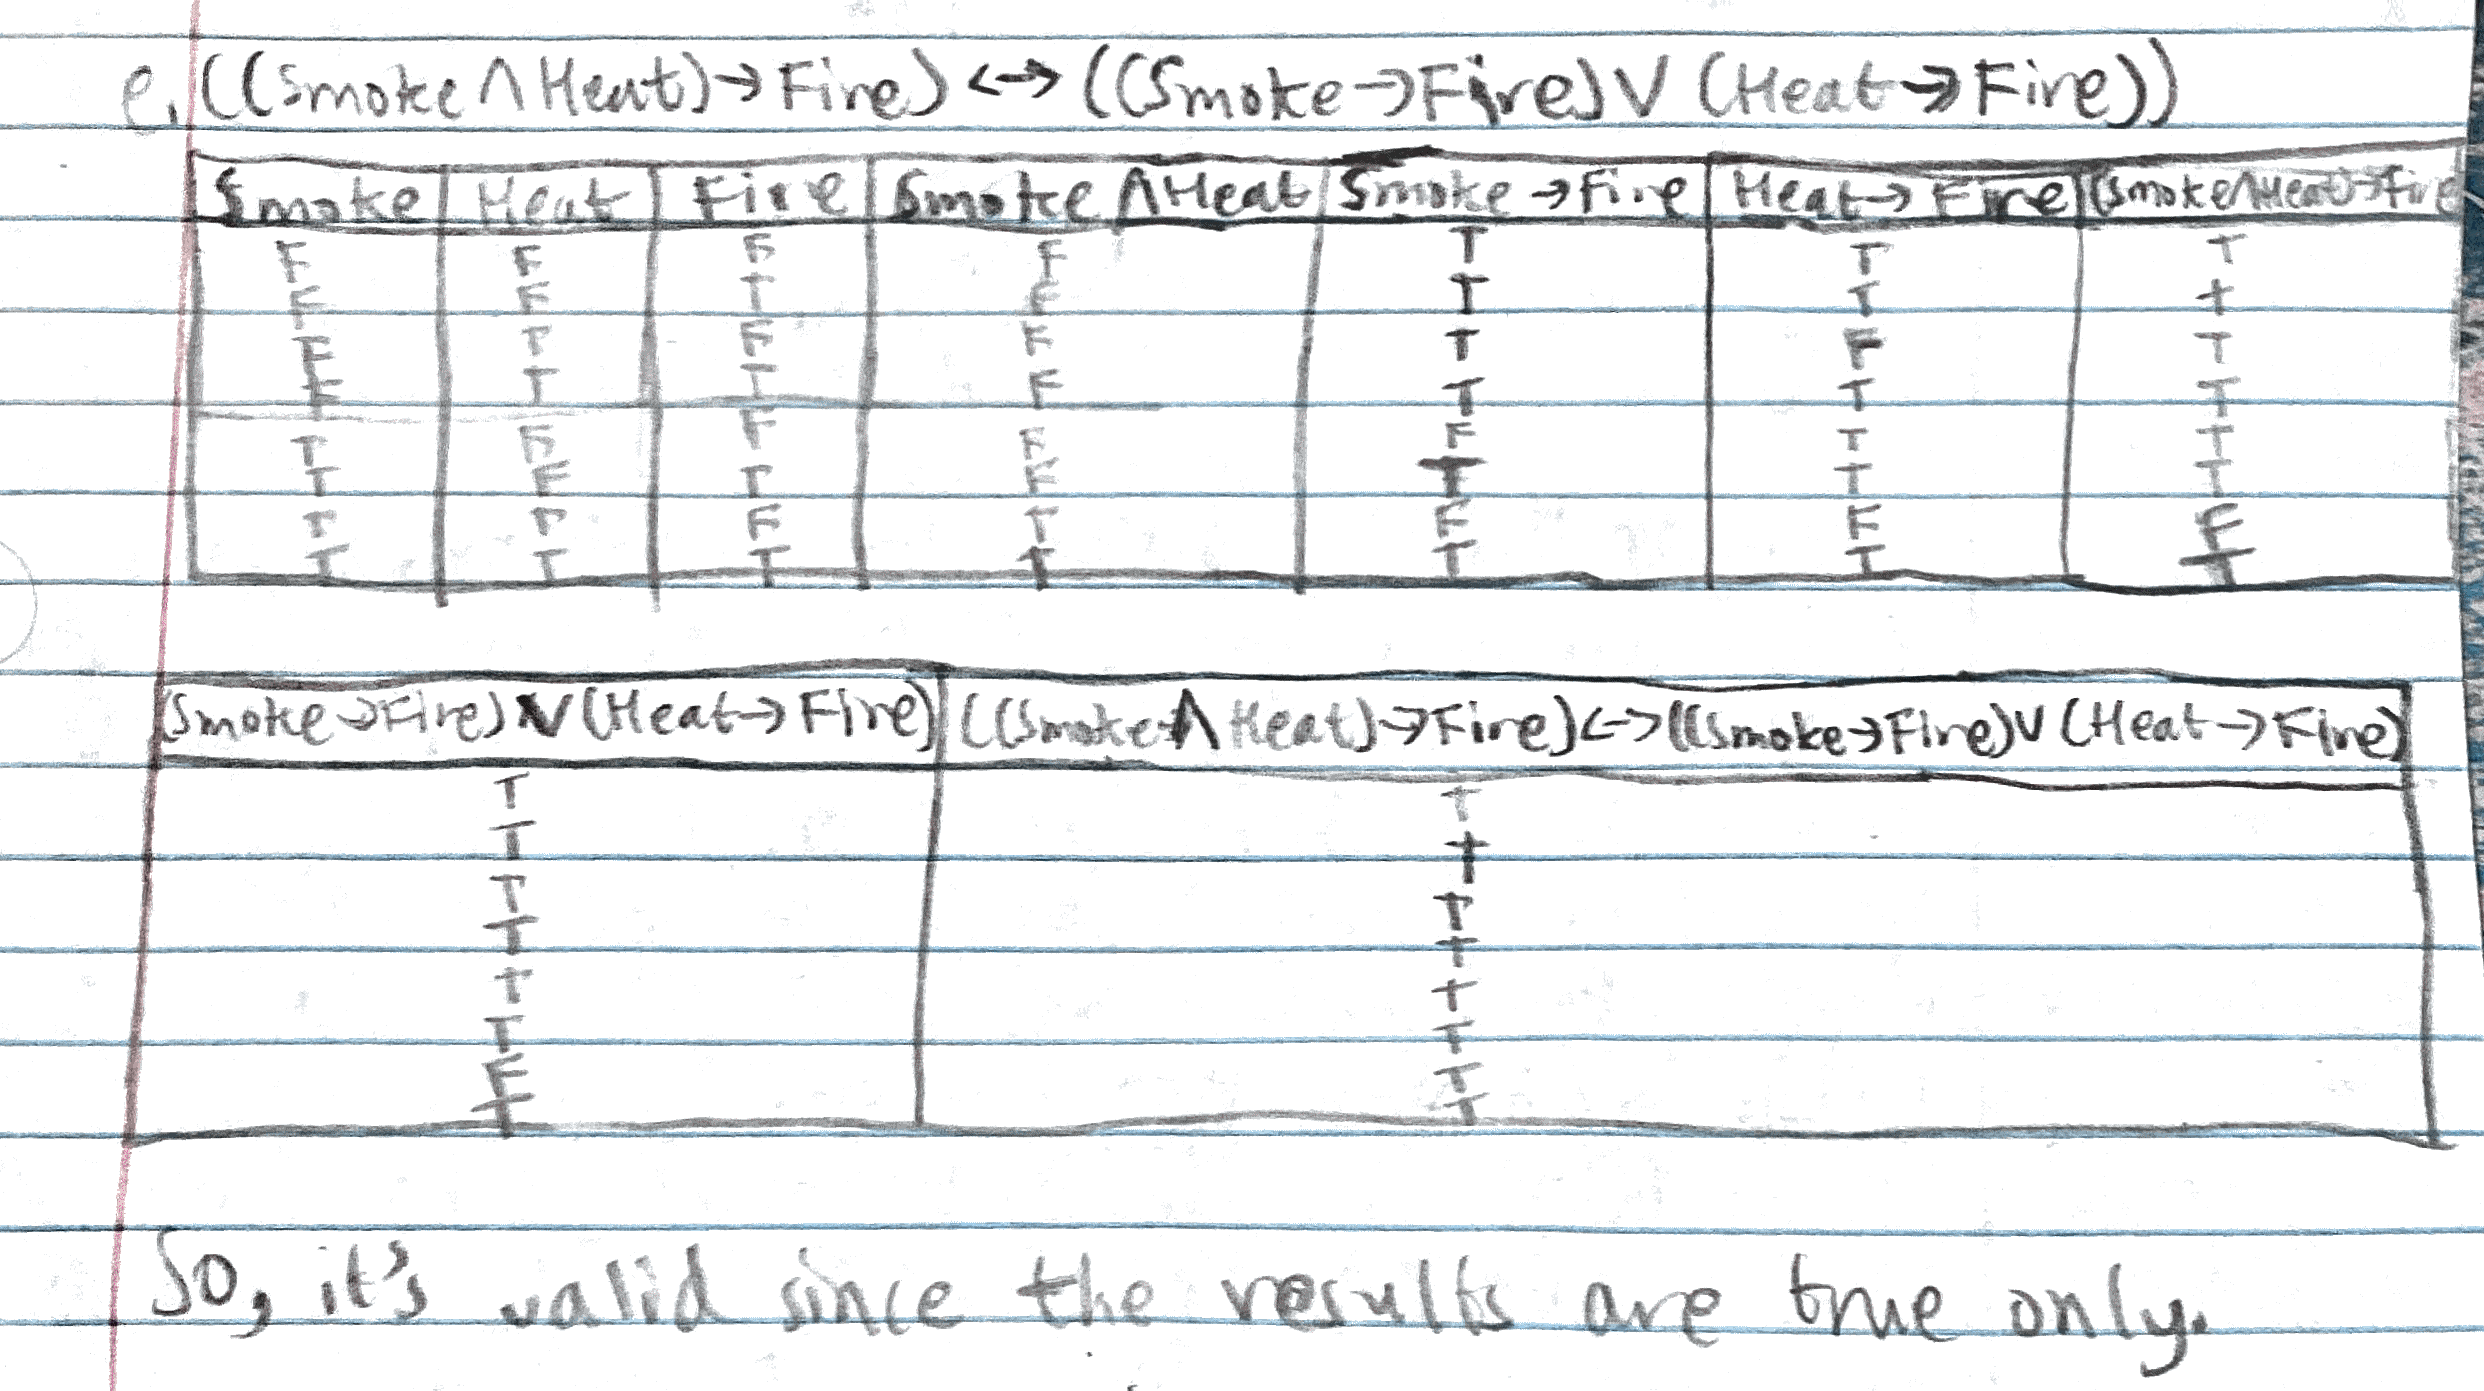 e. ((Smoke ∧ Heat) → Fire) <-> ((Smoke → Fire) ∨ (Heat → Fire))
Smoke Heat Fire Smoke ∧ Heat Smoke → Fire Heat → Fire (Smoke ∧ Heat) → Fire
F F F F T T T
F F T F T T T
F T F F T F T
F T T F T T T
T F F F F T T
T F T F T T T
T T F T F F F
T T T T T T T
(Smoke → Fire) ∨ (Heat → Fire) ((Smoke ∧ Heat) → Fire) <-> ((Smoke → Fire) ∨ (Heat → Fire)
T T
T T
T T
T T
T T
T T
F T
T T
So, it's valid since the results are true only.